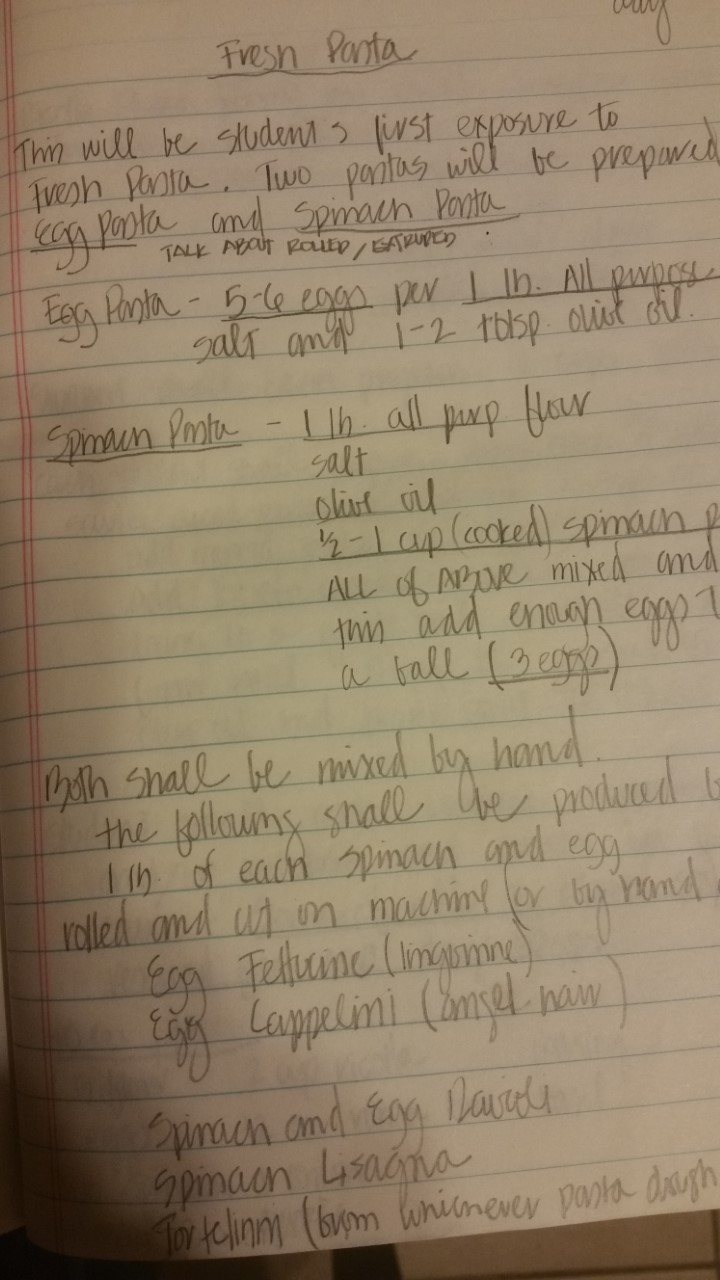 Fresh Pasta
This will be student's first exposure to
Fresh Pasta. Two pastas will be prepared
Egg Pasta and Spinach Pasta
TALK ABOUT ROLLED/EXTRUDED
Egg Pasta - 5-6 eggs per 1 lb. All purpose
salt and 1-2 tblsp. olive oil.
Spinach Pasta - 1 lb. all purp flour
salt
olive oil
½-1 cup (cooked) spinach p
ALL of ABOVE mixed and
this add enough eggs t
a ball (3 eggs)
Both shall be mixed by hand.
the following shall be produced
1 lb. of each spinach and egg
rolled and cut on machine (or by hand
Egg Fettucine (linguinne)
Egg Cappelini (angel hair)
Spinach and Egg Ravioli
Spinach Lisagna
Tortelinni (from whichever pasta dough